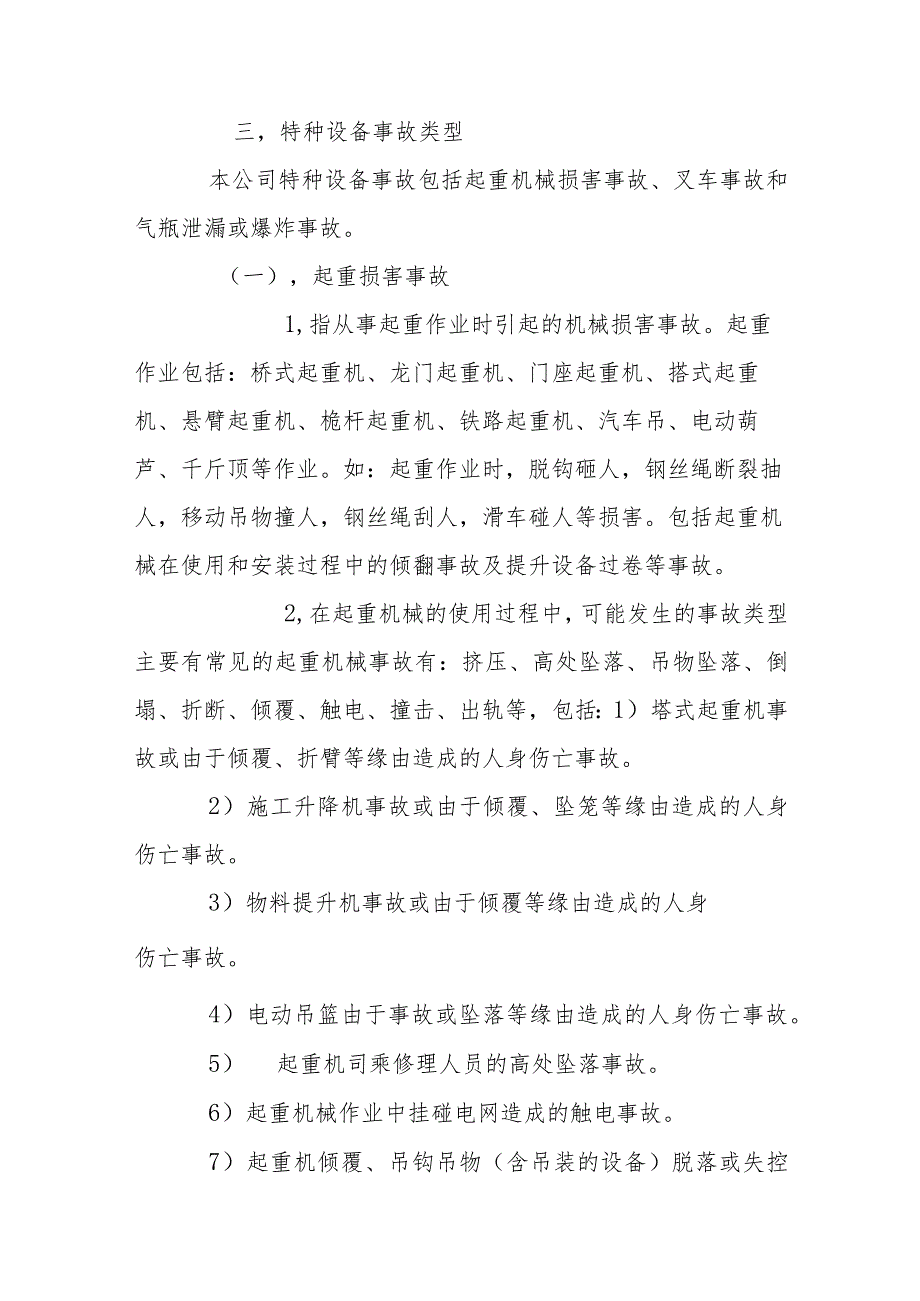 三，特种设备事故类型
本公司特种设备事故包括起重机械损害事故、叉车事故和
气瓶泄漏或爆炸事故。
（一），起重损害事故
1,指从事起重作业时引起的机械损害事故。起重
作业包括：桥式起重机、龙门起重机、门座起重机、搭式起重
机、悬臂起重机、桅杆起重机、铁路起重机、汽车吊、电动葫
芦、千斤顶等作业。如：起重作业时，脱钩砸人，钢丝绳断裂抽
人，移动吊物撞人，钢丝绳刮人，滑车碰人等损害。包括起重机
械在使用和安装过程中的倾翻事故及提升设备过卷等事故。
2,在起重机械的使用过程中，可能发生的事故类型
主要有常见的起重机械事故有：挤压、高处坠落、吊物坠落、倒
塌、折断、倾覆、触电、撞击、出轨等，包括：1）塔式起重机事
故或由于倾覆、折臂等缘由造成的人身伤亡事故。
2）施工升降机事故或由于倾覆、坠笼等缘由造成的人身
伤亡事故。
3）物料提升机事故或由于倾覆等缘由造成的人身
伤亡事故。
4）电动吊篮由于事故或坠落等缘由造成的人身伤亡事故。
5） 起重机司乘修理人员的高处坠落事故。
6）起重机械作业中挂碰电网造成的触电事故。
7）起重机倾覆、吊钩吊物（含吊装的设备）脱落或失控